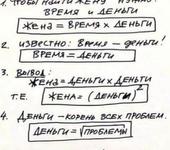 1. Чтобы найти жену нужно:
время и деньги
Жена = Время × Деньги
2. Известно: Время – деньги!
Время = Деньги
3. Вывод:
Жена = Деньги × Деньги
т.е. Жена = (Деньги)²
4. Деньги – корень всех проблем.
Деньги = √Проблемы